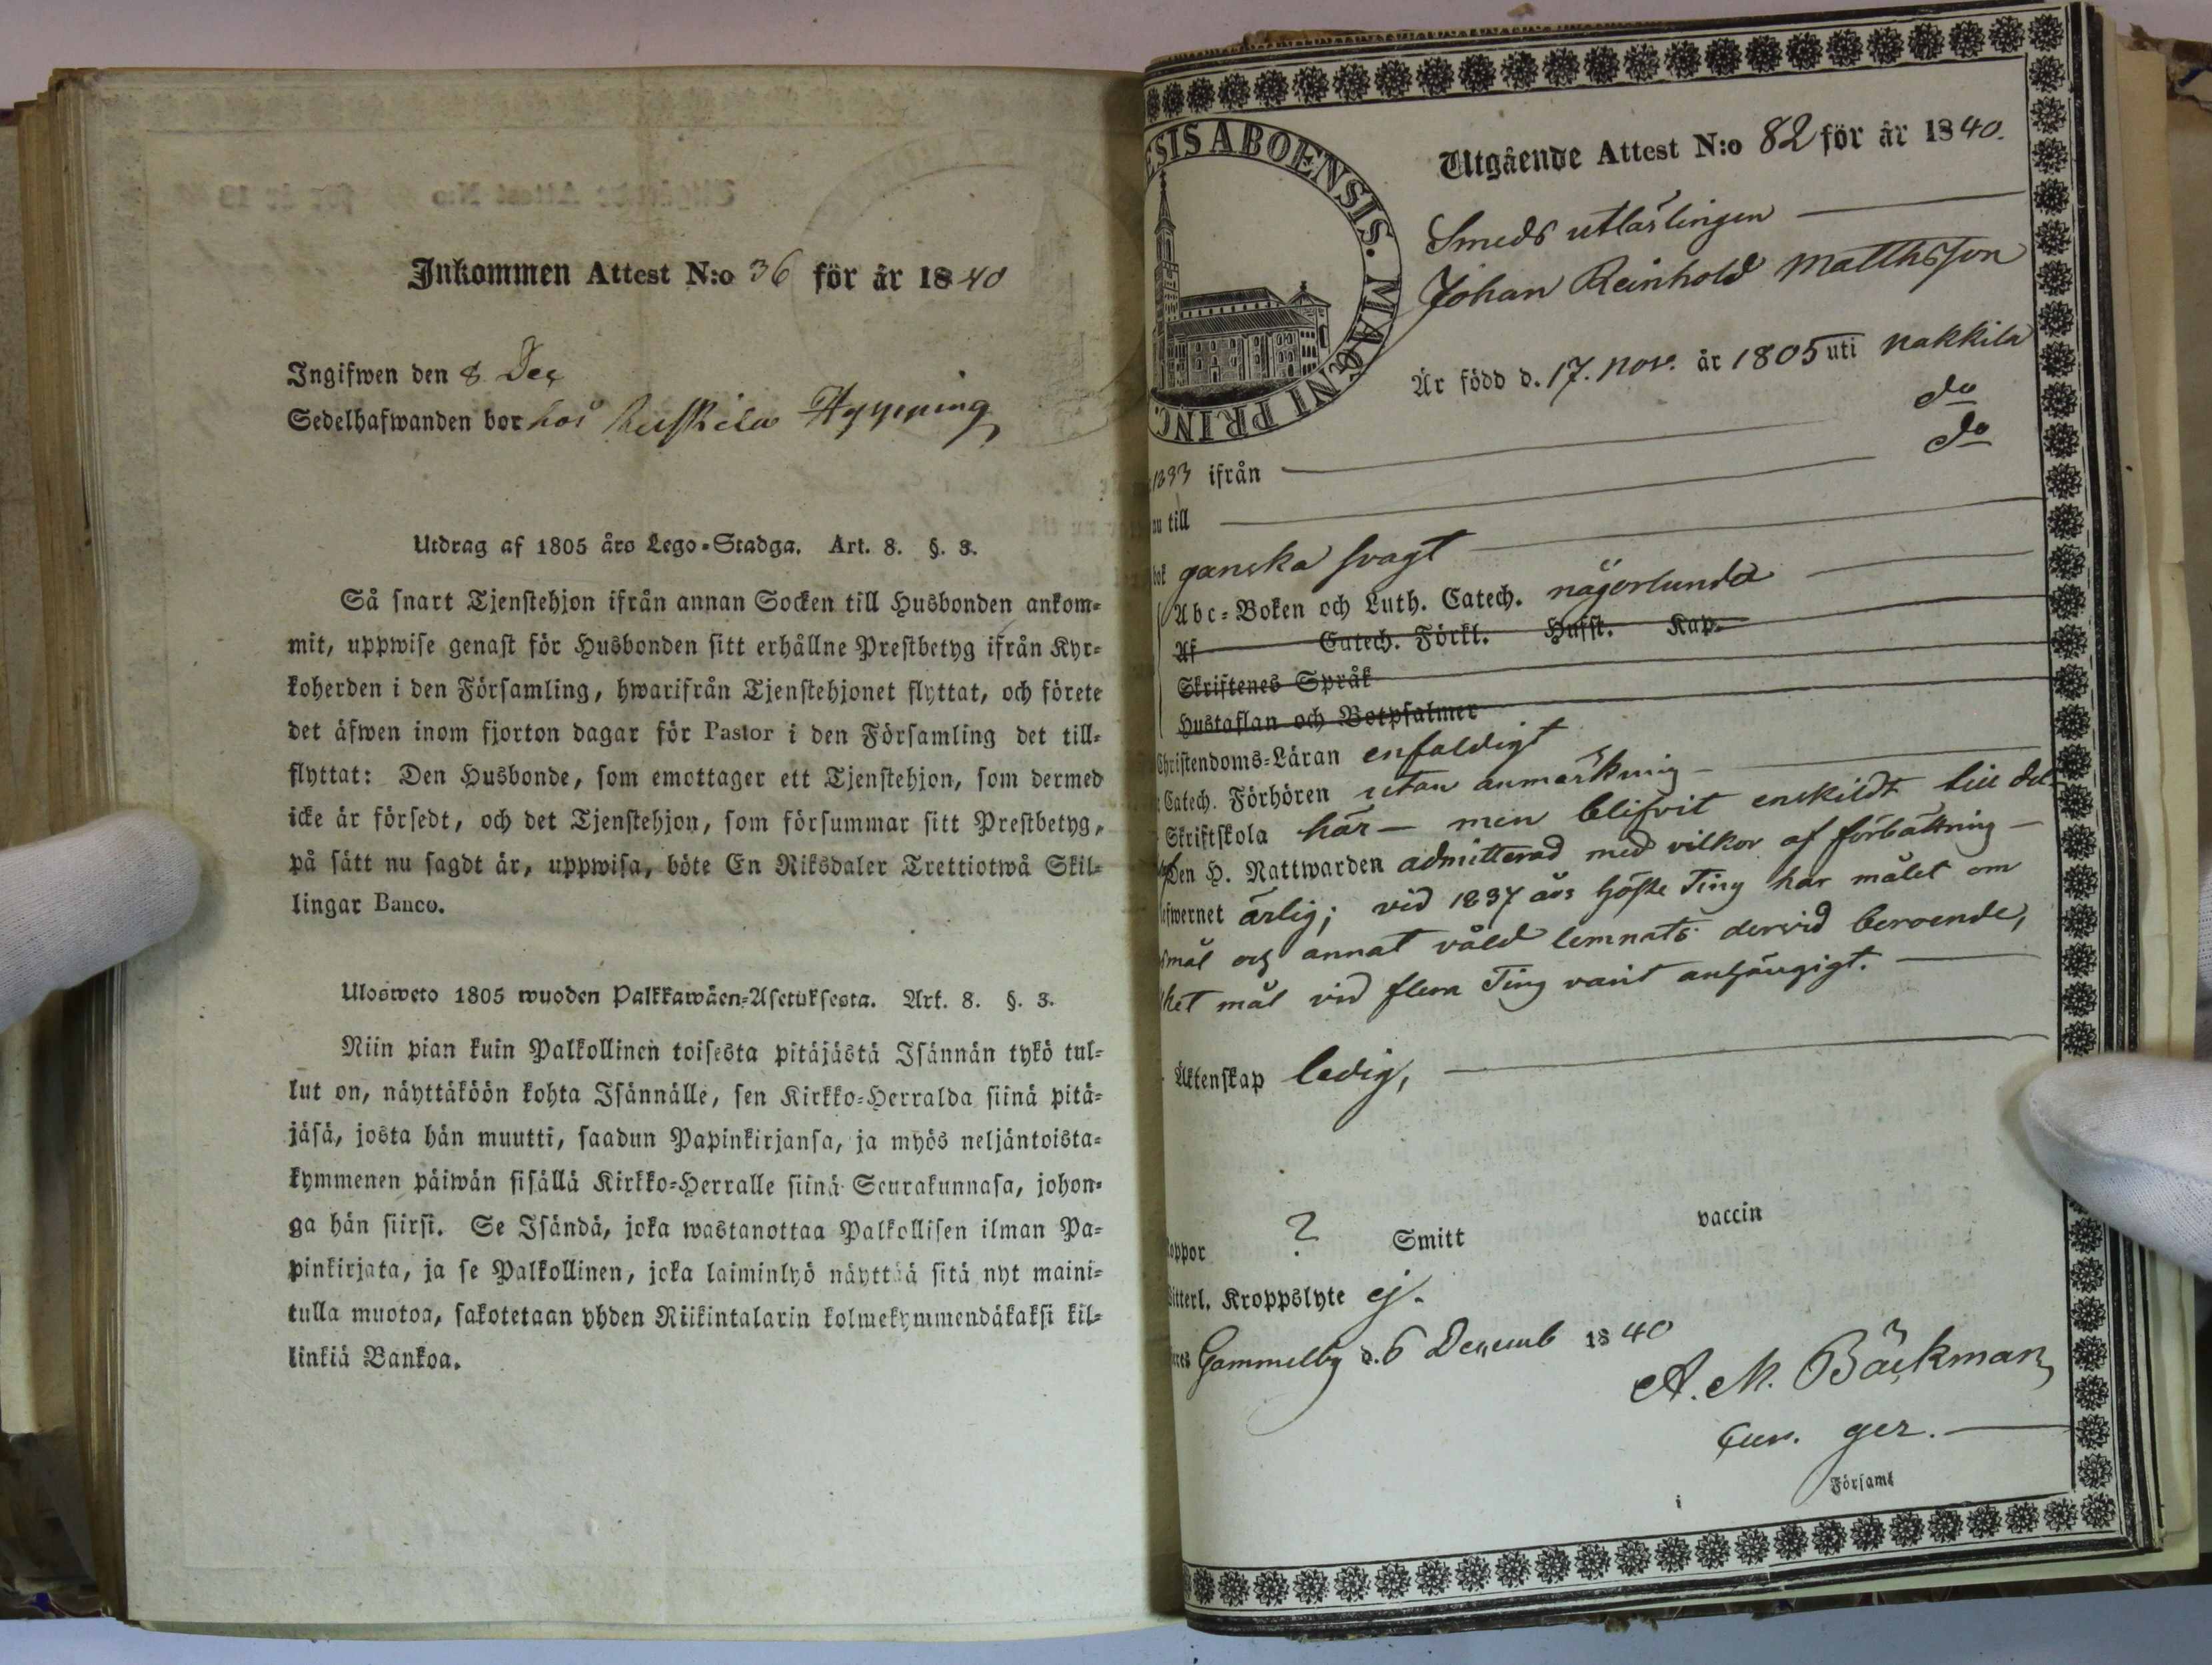 Inkommen Attest N:o 36 för år 1840
Ingifwen den 8 Dec
Sedelhafwanden bor hos Hyyping
Utdrag af 1805 års Lego-Stadga. Art. 8. §. 3.
Så snart Tjenstehjon ifrån annan Socken till Husbonden ankom-
mit, uppwise genast för Husbonden sitt erhållne Prestbetyg ifrån Kyr-
koherden i den Församling, hwarifrån Tjenstehjonet flyttat, och förete
det äfwen inom fjorton dagar för Pastor i den Församling det till-
flyttat: Den Husbonde, som emottager ett Tjenstehjon, som dermed
icke är försedt, och det Tjenstehjon, som försummar sitt Prestbetyg,
på sätt nu sagdt är, uppwisa, böte En Riksdaler Trettiotwå Skil-
lingar Banco.
Ulosweto 1805 wuoden Palkkawäen-Asetuksesta. Art. 8. §. 3.
Niin pian kuin Palkollinen toisesta pitäjästä Isännän tykö tul-
lut on, näyttäköön kohta Isännälle, sen Kirkko-Herralda siinä pitä-
jäsä, josta hän muutti, saadun Papinkirjansa, ja myös neljäntoista-
kymmenen päiwän sisällä Kirkko-Herralle siinä Seurakunnasa, johon-
ga hän siirsi. Se Isändä, joka wastanottaa Palkollisen ilman Pa-
pinkirjata, ja se Palkollinen, joka laiminlyö näyttää sitä nyt maini-
tulla muotoa, sakotetaan yhden Riikintalarin kolmekymmendäkaksi kil-
linkiä Bankoa.
ESIS ABOENSIS. MAGNI PRINC
Utgående Attest N:o 82 för år 1840.
Smeds utlärlingen
Johan Reinhold Matthsson
Är född d. 17. nov. år 1805 uti Nakkila
1833 ifrån do
nu till do
bok ganska svagt
Abc-Boken och Luth. Catech. någorlunda
Af Catech. Förkl. Hufst. Kap.
Skriftenes Språk
Hustaflan och Botpsalmer
Christendoms-Läran enfaldigt
Catech. Förhören utan anmärkning
Skriftskola här — men blifvit enskildt till del
Den H. Nattwarden admitterad med vilkor af förbättring
efwernet ärlig; vid 1837 års höste Ting har målet om
mål och annat våld lemnats dervid beroende,
ket mål vid flera Ting varit anhängigt.
Äktenskap ledig,
oppor ? Smitt vaccin
itterl. Kroppslyte ej.
Gammelby d. 6 Decemb 1840
A. M. Bäckman
Cur. ger.
i Församl